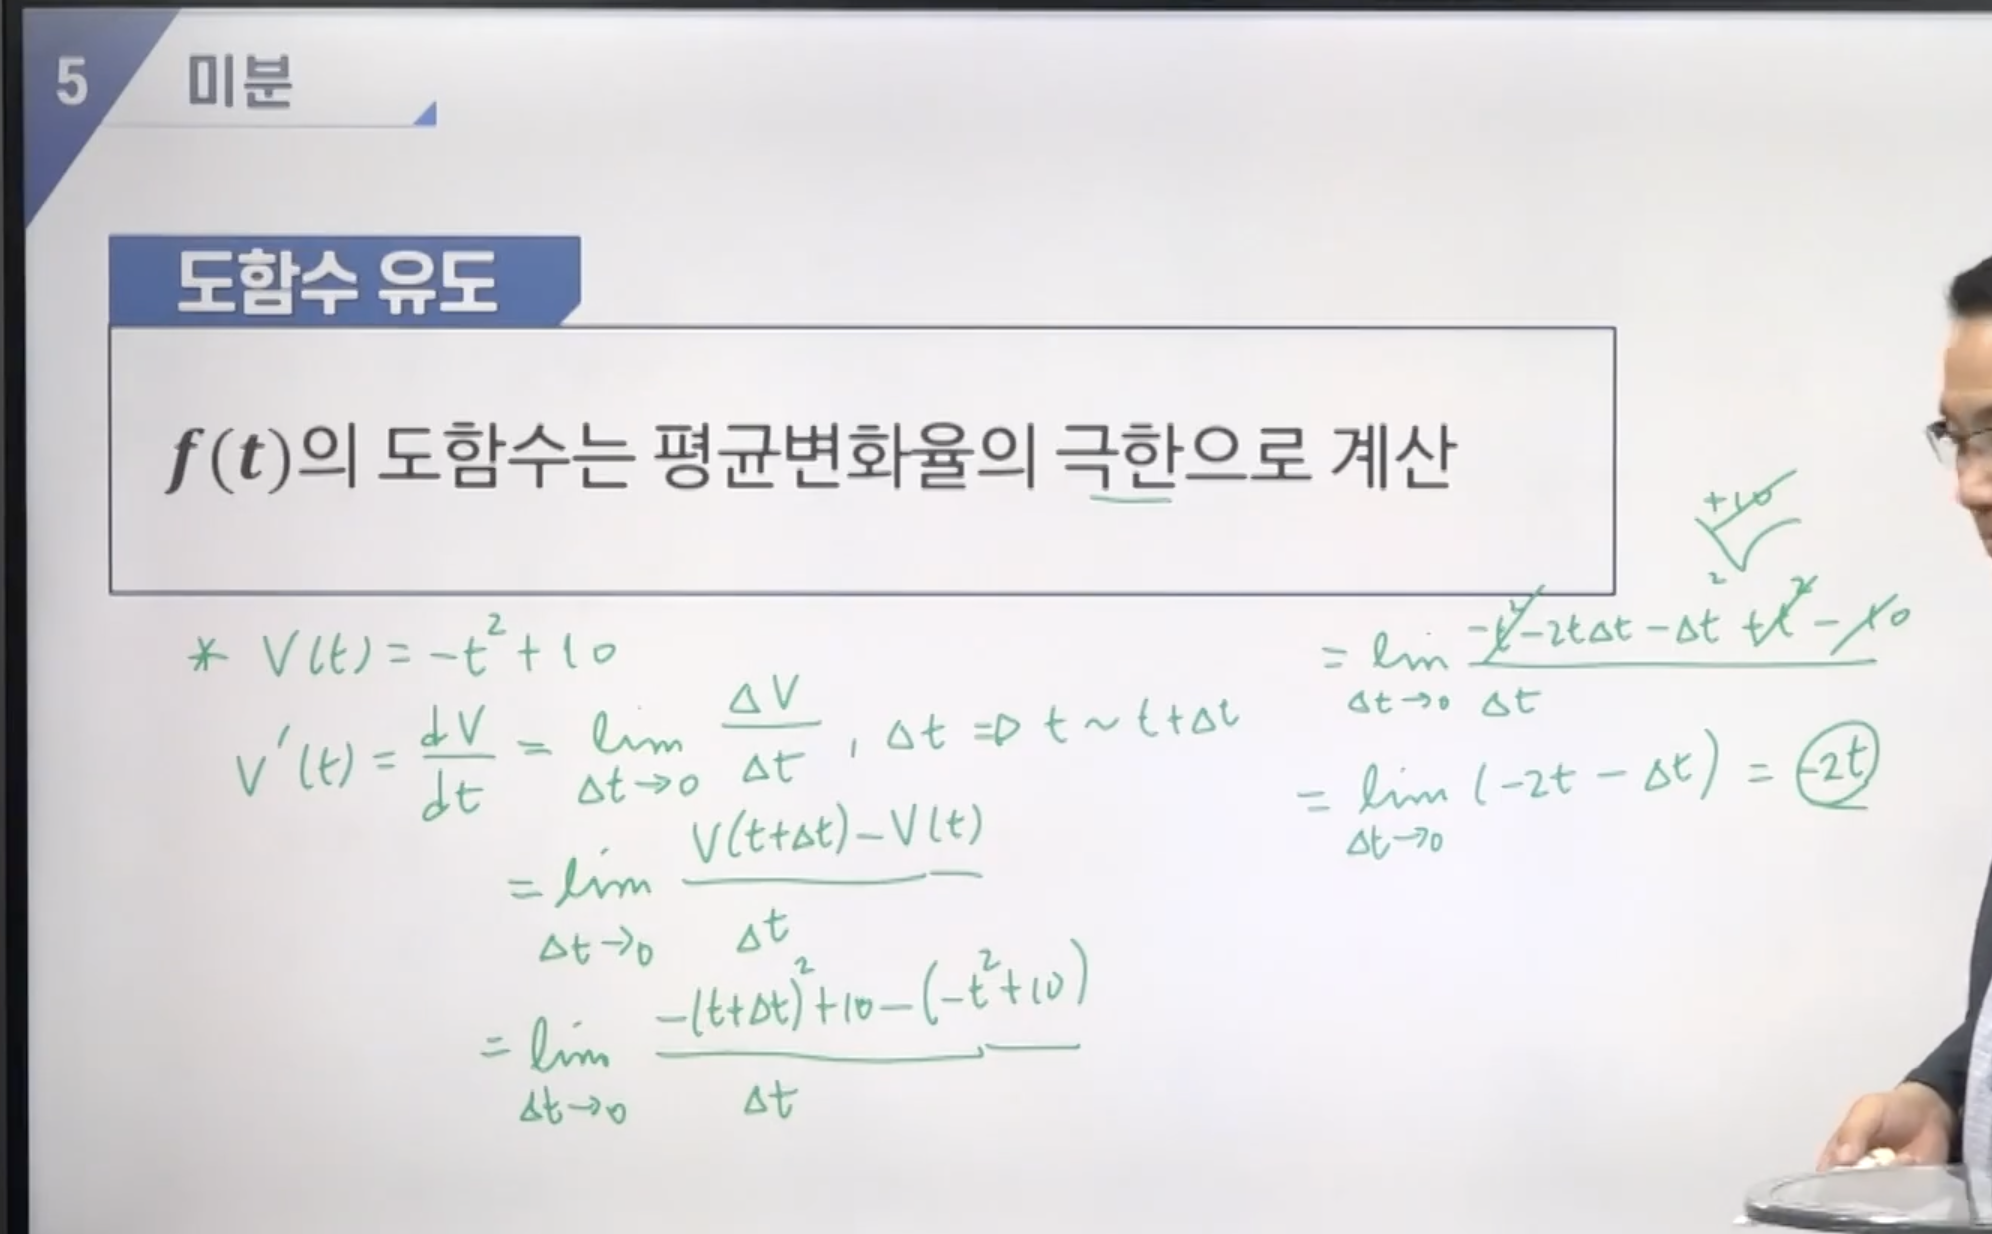 5 미분
도함수 유도
f(t)의 도함수는 평균변화율의 극한으로 계산
* V(t) = -t² + 10
V'(t) = dV/dt = lim Δt→0 ΔV/Δt , Δt ⇒ t ~ t+Δt
= lim Δt→0 V(t+Δt)-V(t) / Δt
= lim Δt→0 -(t+Δt)²+10-(-t²+10) / Δt
+10
= lim Δt→0 -t²-2tΔt-Δt²+t²-10 / Δt
= lim Δt→0 (-2t - Δt) = -2t